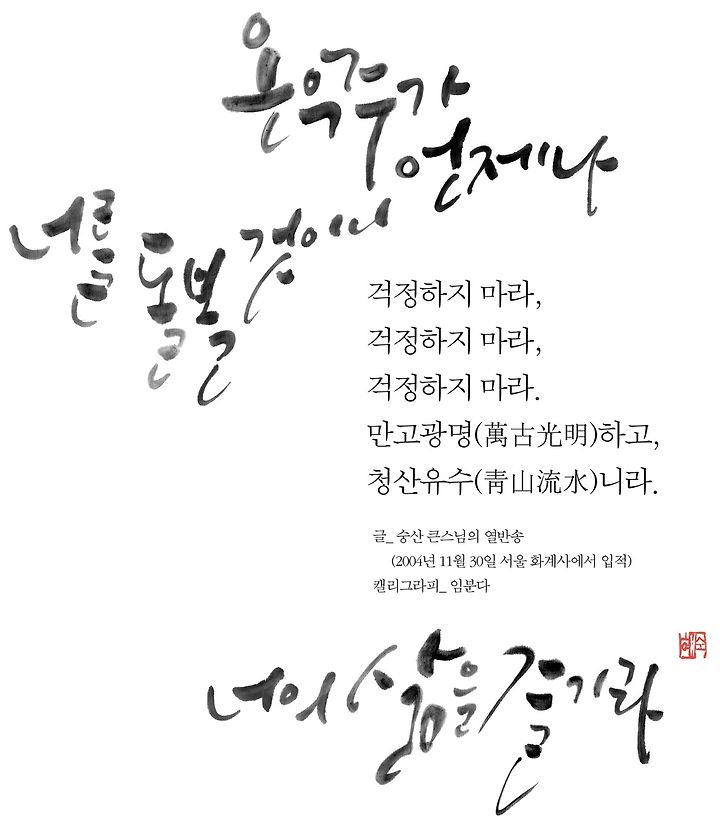 온 우주가
언제나
너를 돌볼 것이니
걱정하지 마라,
걱정하지 마라,
걱정하지 마라.
만고광명(萬古光明)하고,
청산유수(靑山流水)니라.
글_ 숭산 큰스님의 열반송
(2004년 11월 30일 서울 화계사에서 입적)
캘리그라피_ 임분다
너의 삶을 즐기라